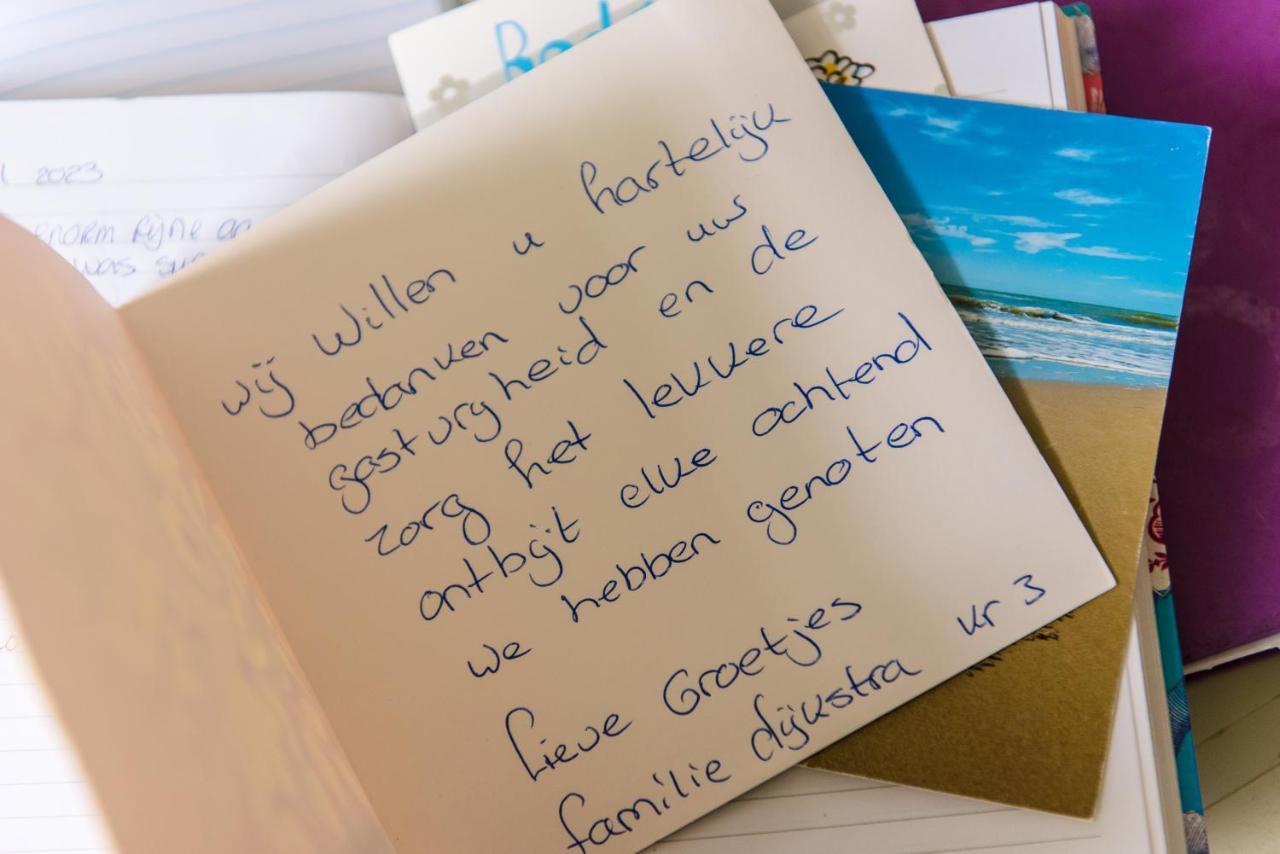 l 2023
enorm fijne
was
wij willen u hartelijk
bedanken voor uw
gastvrgheid en de
zorg het lekkere
ontbijt elke ochtend
we hebben genoten
Lieve Groetjes
familie dijkstra kr 3